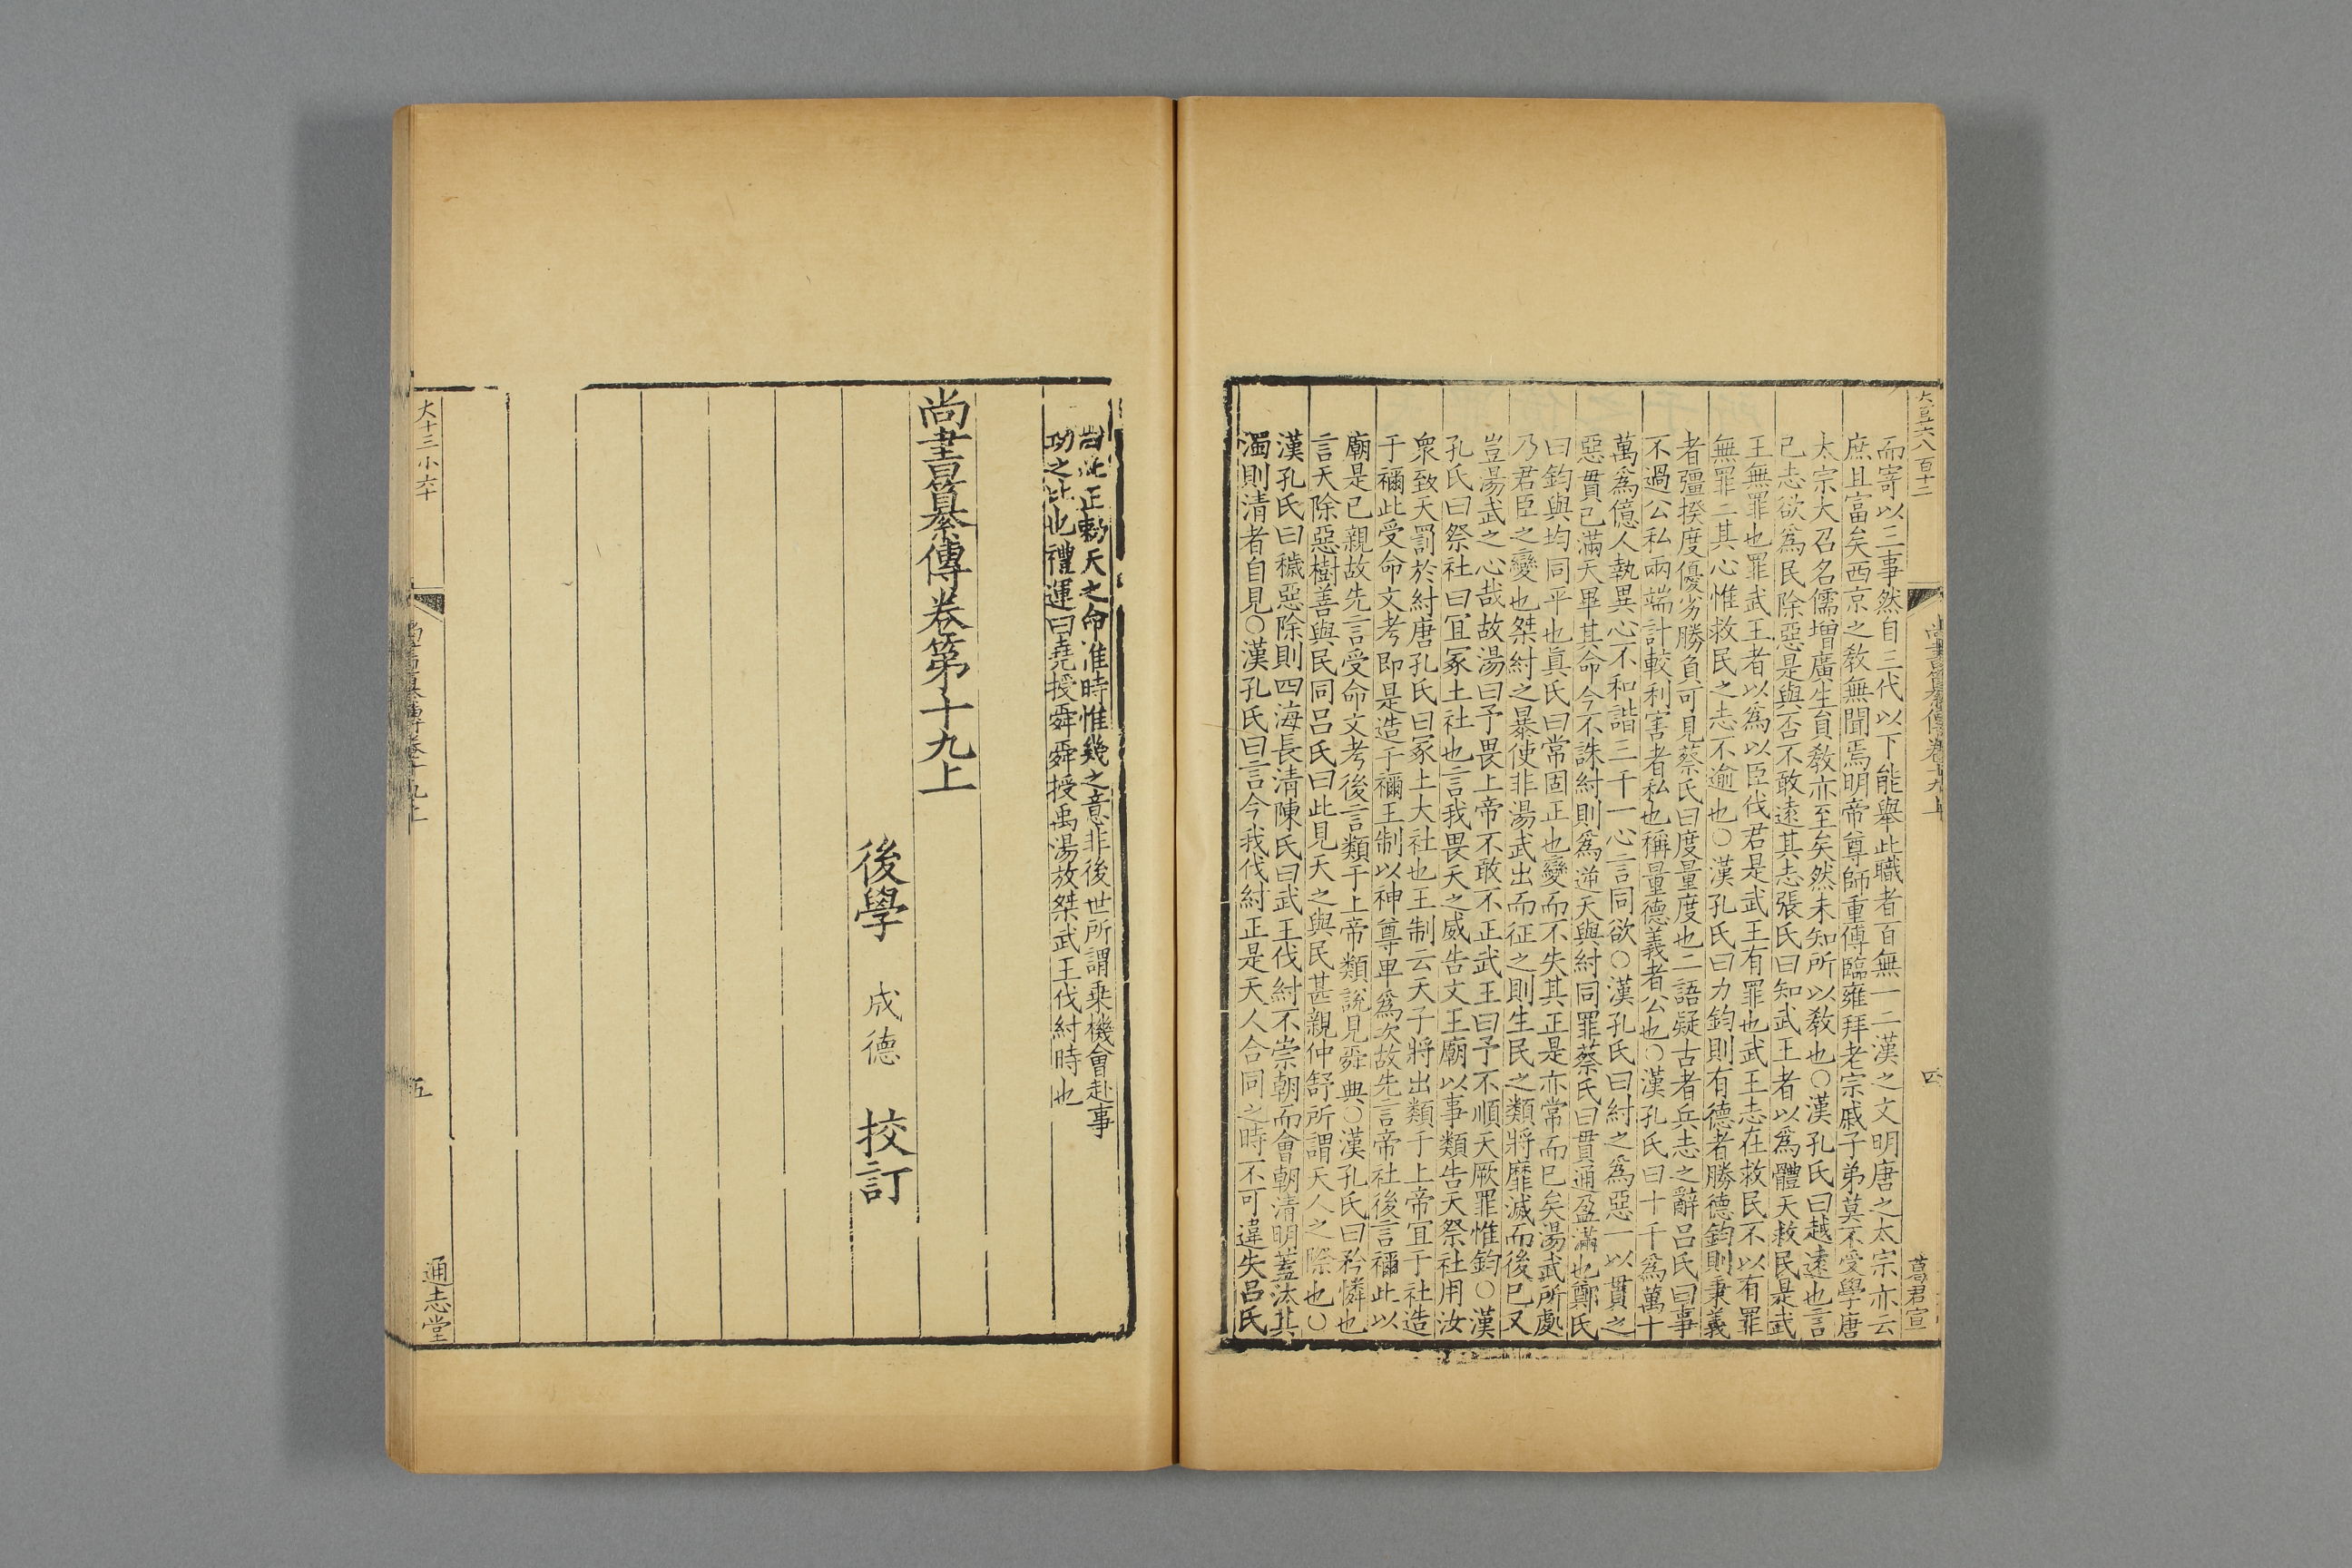 大三百六八百十二
尚書纂傳卷十九上
四
葛君宣
而寄以二事然自三代以下能舉此職者百無一二漢之文明唐之太宗亦云
庶且富矣西京之教無聞焉明帝尊師重傅臨雍拜老宗戚子弟莫不受學唐
太宗大召名儒增廣生員教亦至矣然未知所以教也○漢孔氏曰越遠也言
己志欲爲民除惡是與否不敢遠其志張氏曰知武王者以爲體天救民是武
王無罪也罪武王者以爲以臣伐君是武王有罪也武王志在救民不以有罪
無罪二其心惟救民之志不逾也○漢孔氏曰力鈞則有德者勝德鈞則秉義
者彊揆度優劣勝負可見蔡氏曰度量度也二語疑古者兵志之辭吕氏曰事
不過公私兩端計較利害者私也稱量德義者公也○漢孔氏曰十千爲萬十
萬爲億人執異心不和諧三千一心言同欲○漢孔氏曰紂之爲惡一以貫之
惡貫已滿天畢其命今不誅紂則爲逆天與紂同罪蔡氏曰貫通盈滿也鄭氏
曰鈞與均同平也眞氏曰常固正也變而不失其正是亦常而已矣湯武所處
乃君臣之變也桀紂之暴使非湯武出而征之則生民之類將靡滅而後已又
豈湯武之心哉故湯曰予畏上帝不敢不正武王曰予不順天厥罪惟鈞○漢
孔氏曰祭社曰宜冢土社也言我畏天之威告文王廟以事類告天祭社用汝
衆致天罰於紂唐孔氏曰冢土大社也王制云天子將出類于上帝宜于社造
于禰此受命文考即是造于禰王制以神尊卑爲次故先言帝社後言禰此以
廟是已親故先言受命文考後言類于上帝類說見舜典○漢孔氏曰矜憐也
言天除惡樹善與民同吕氏曰此見天之與民甚親仲舒所謂天人之際也○
漢孔氏曰穢惡除則四海長清陳氏曰武王伐紂不崇朝而會朝清明蓋汰其
濁則清者自見○漢孔氏曰言今我伐紂正是天人合同之時不可違失吕氏
曰此正勑天之命惟時惟幾之意非後世所謂乗機會赴事
功之比也禮運曰堯授舜舜授禹湯放桀武王伐紂時也
尚書纂傳卷第十九上
後學 成德 挍訂
大十三小六十
尚書纂傳卷十九上
五
通志堂